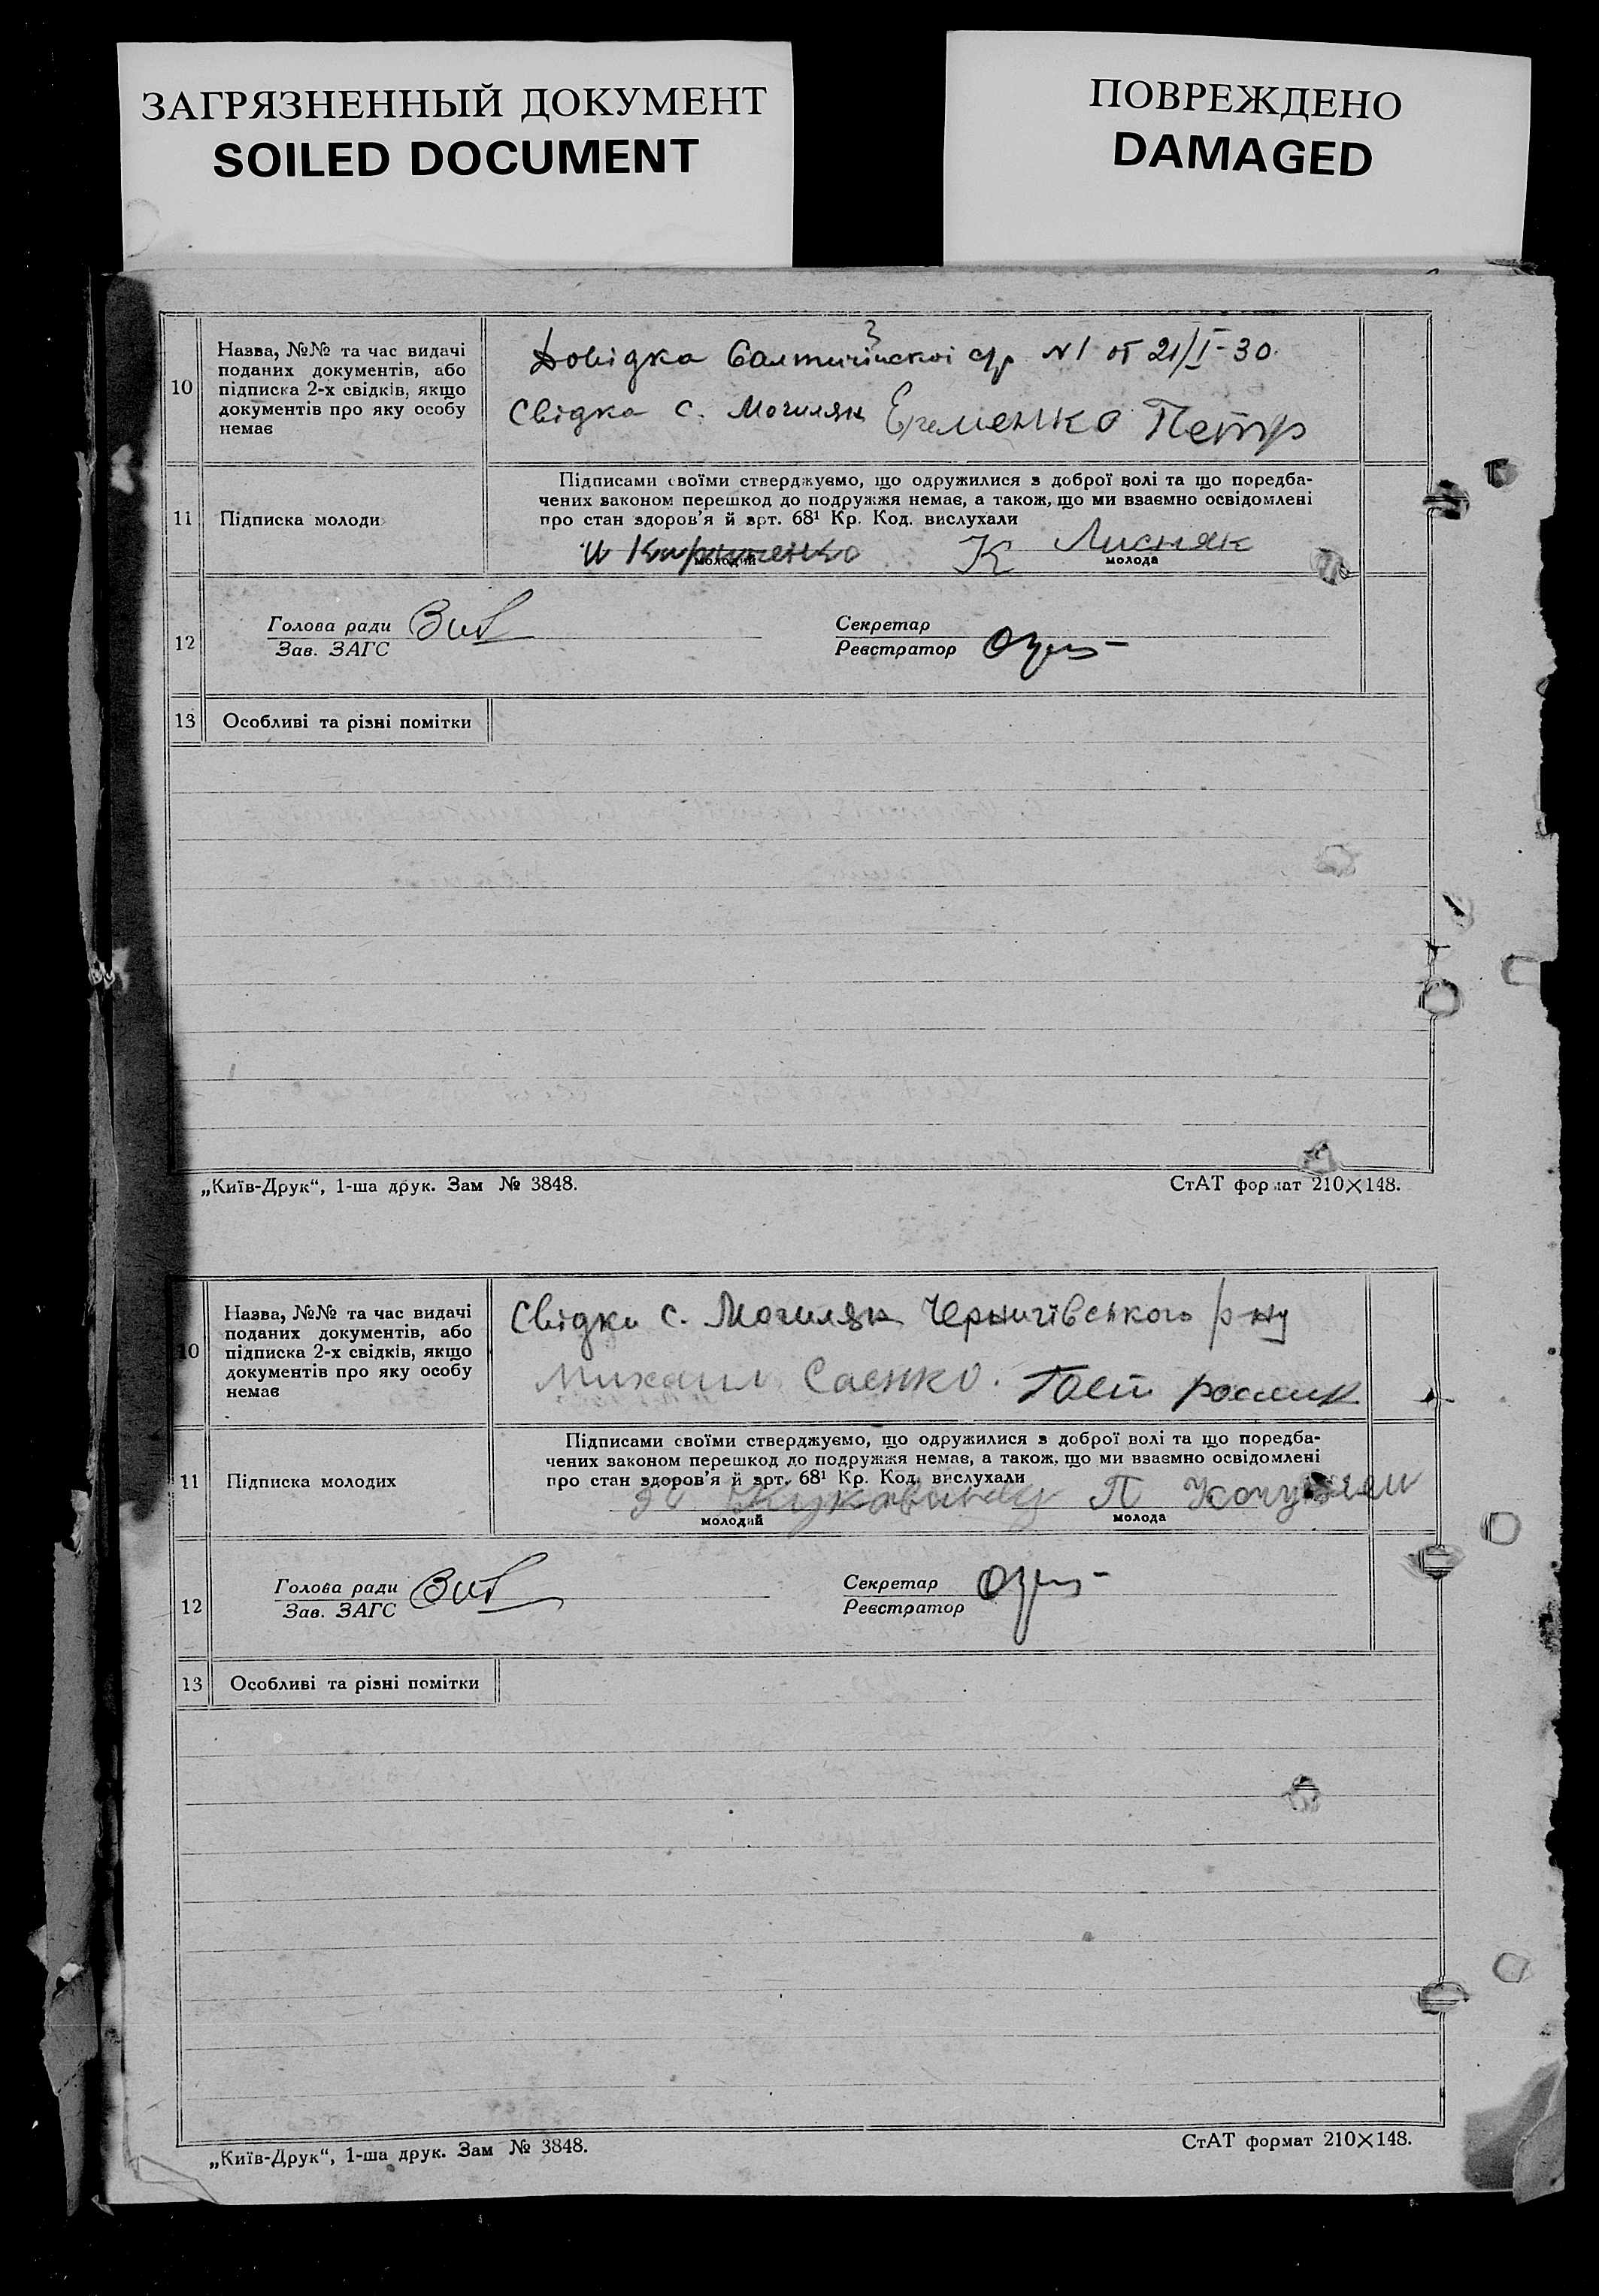 ЗАГРЯЗНЕННЫЙ ДОКУМЕНТ
SOILED DOCUMENT
ПОВРЕЖДЕНО
DAMAGED
10
Назва, №№ та час видачі
поданих документів, або
підписка 2-х свідків, якщо
документів про яку особу
немає
Довідка с/р №1 от 21/I-30.
Свідка с. Могилян Еременко Петр
11
Підписка молоди
Підписами своїми стверджуємо, що одружилися з доброї волі та що поредба-
чених законом перешкод до подружжя немає, а також, що ми взаємно освідомлені
про стан здоров'я й арт. 68¹ Кр. Код. вислухали
И Кириченко К Лисняк
молодий молода
12
Голова ради
Зав. ЗАГС
Секретар
Реєстратор
13
Особливі та різні помітки
„Київ-Друк“, 1-ша друк. Зам № 3848.
СтАТ формат 210×148.
10
Назва, №№ та час видачі
поданих документів, або
підписка 2-х свідків, якщо
документів про яку особу
немає
Свідки с. Могилян Чернигівського р-ну
Михаил Саенко.
11
Підписка молодих
Підписами своїми стверджуємо, що одружилися з доброї волі та що поредба-
чених законом перешкод до подружжя немає, а також, що ми взаємно освідомлені
про стан здоров'я й арт. 68¹ Кр. Код. вислухали
П
молодий молода
12
Голова ради
Зав. ЗАГС
Секретар
Реєстратор
13
Особливі та різні помітки
„Київ-Друк“, 1-ша друк. Зам № 3848.
СтАТ формат 210×148.